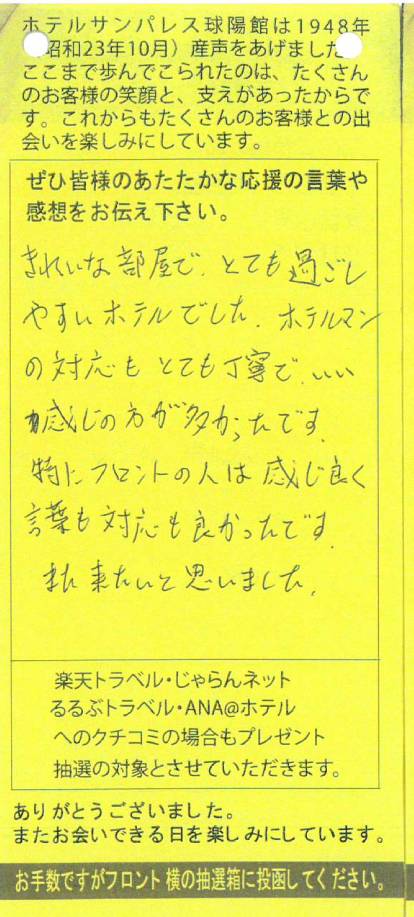 ホテルサンパレス球陽館は1948年
昭和23年10月）産声をあげました
ここまで歩んでこられたのは、たくさん
のお客様の笑顔と、支えがあったからで
す。これからもたくさんのお客様との出
会いを楽しみにしています。
ぜひ皆様のあたたかな応援の言葉や
感想をお伝え下さい。
きれいな部屋で、とても過ごし
やすいホテルでした。ホテルマン
の対応もとても丁寧で、いい
感じの方が多かったです。
特にフロントの人は感じ良く
言葉も対応も良かったです。
また来たいと思いました。
楽天トラベル・じゃらんネット
るるぶトラベル・ANA@ホテル
へのクチコミの場合もプレゼント
抽選の対象とさせていただきます。
ありがとうございました。
またお会いできる日を楽しみにしています。
お手数ですがフロント横の抽選箱に投函してください。